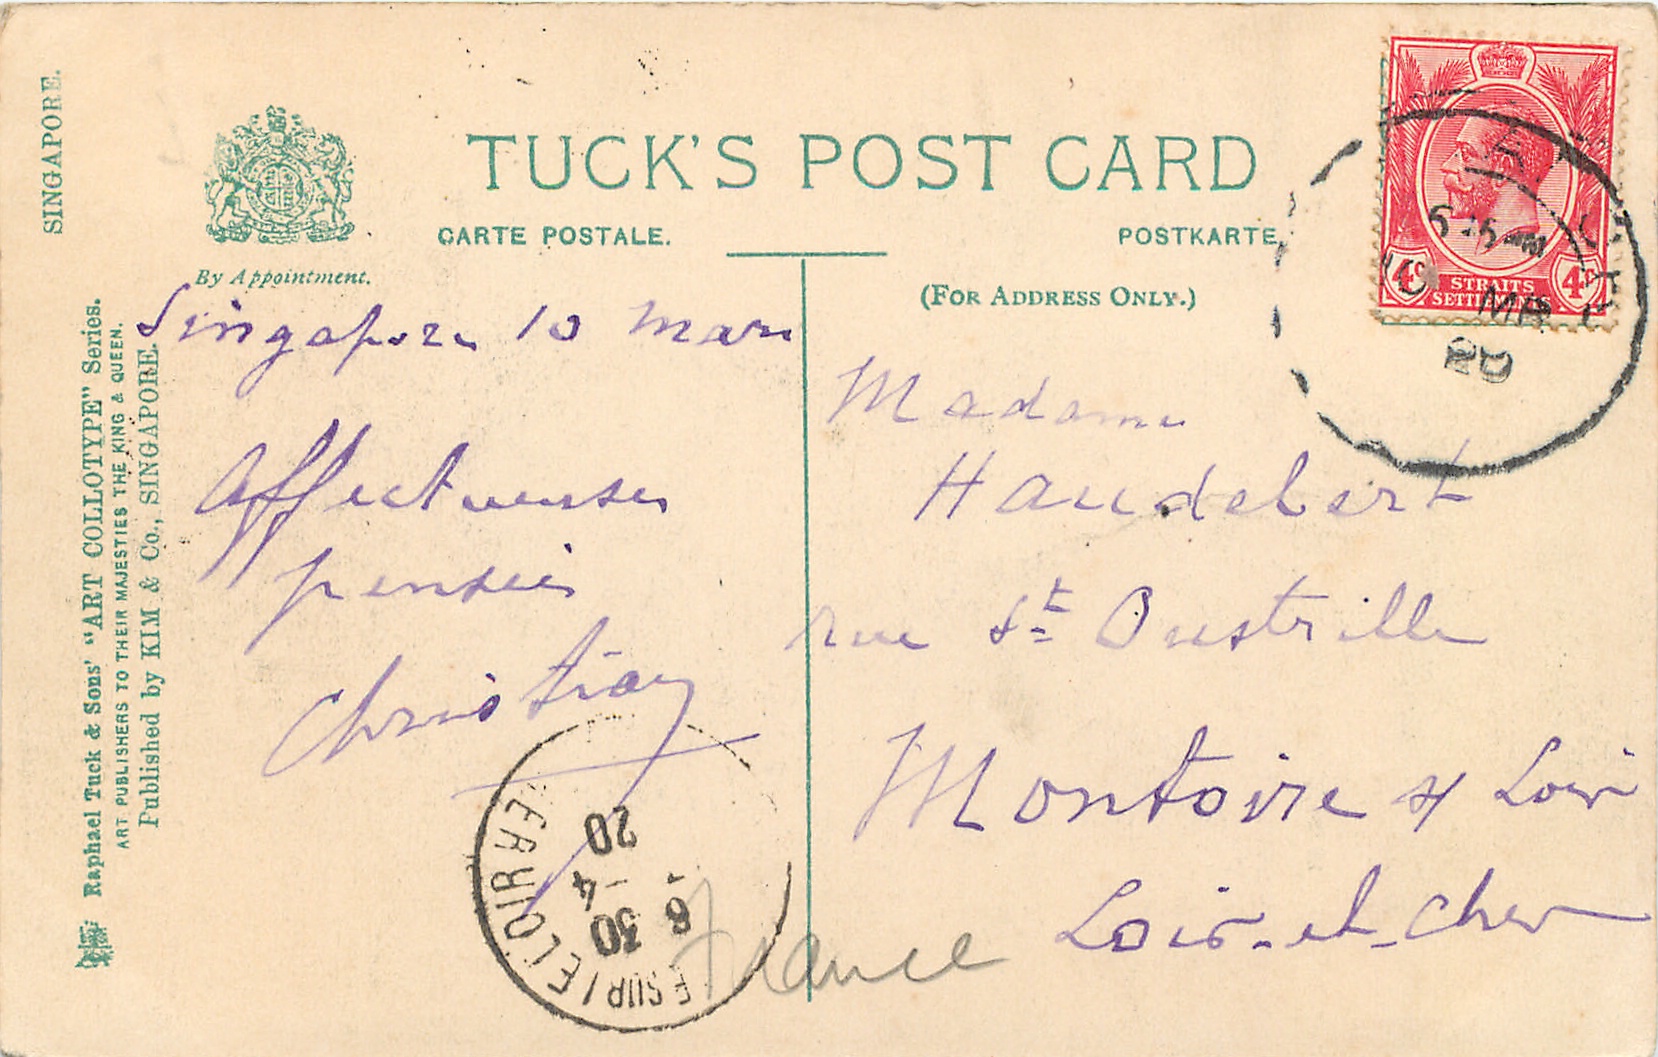 SINGAPORE.
TUCK'S POST CARD
CARTE POSTALE.
POSTKARTE.
By Appointment.
(FOR ADDRESS ONLY.)
Raphael Tuck & Sons' "ART COLLOTYPE" Series.
ART PUBLISHERS TO THEIR MAJESTIES THE KING & QUEEN.
Published by KIM & Co., SINGAPORE.
Singapore 10 Mars
Affectueuses
pensées
Christian
Madame
Haudebert
rue St Oustrille
Montoire s/ Loir
Loir-et-Cher
France
4c 4c
STRAITS
SETTLEMENTS
MR
20
6 30
-4
20
E SUR LE LOIR